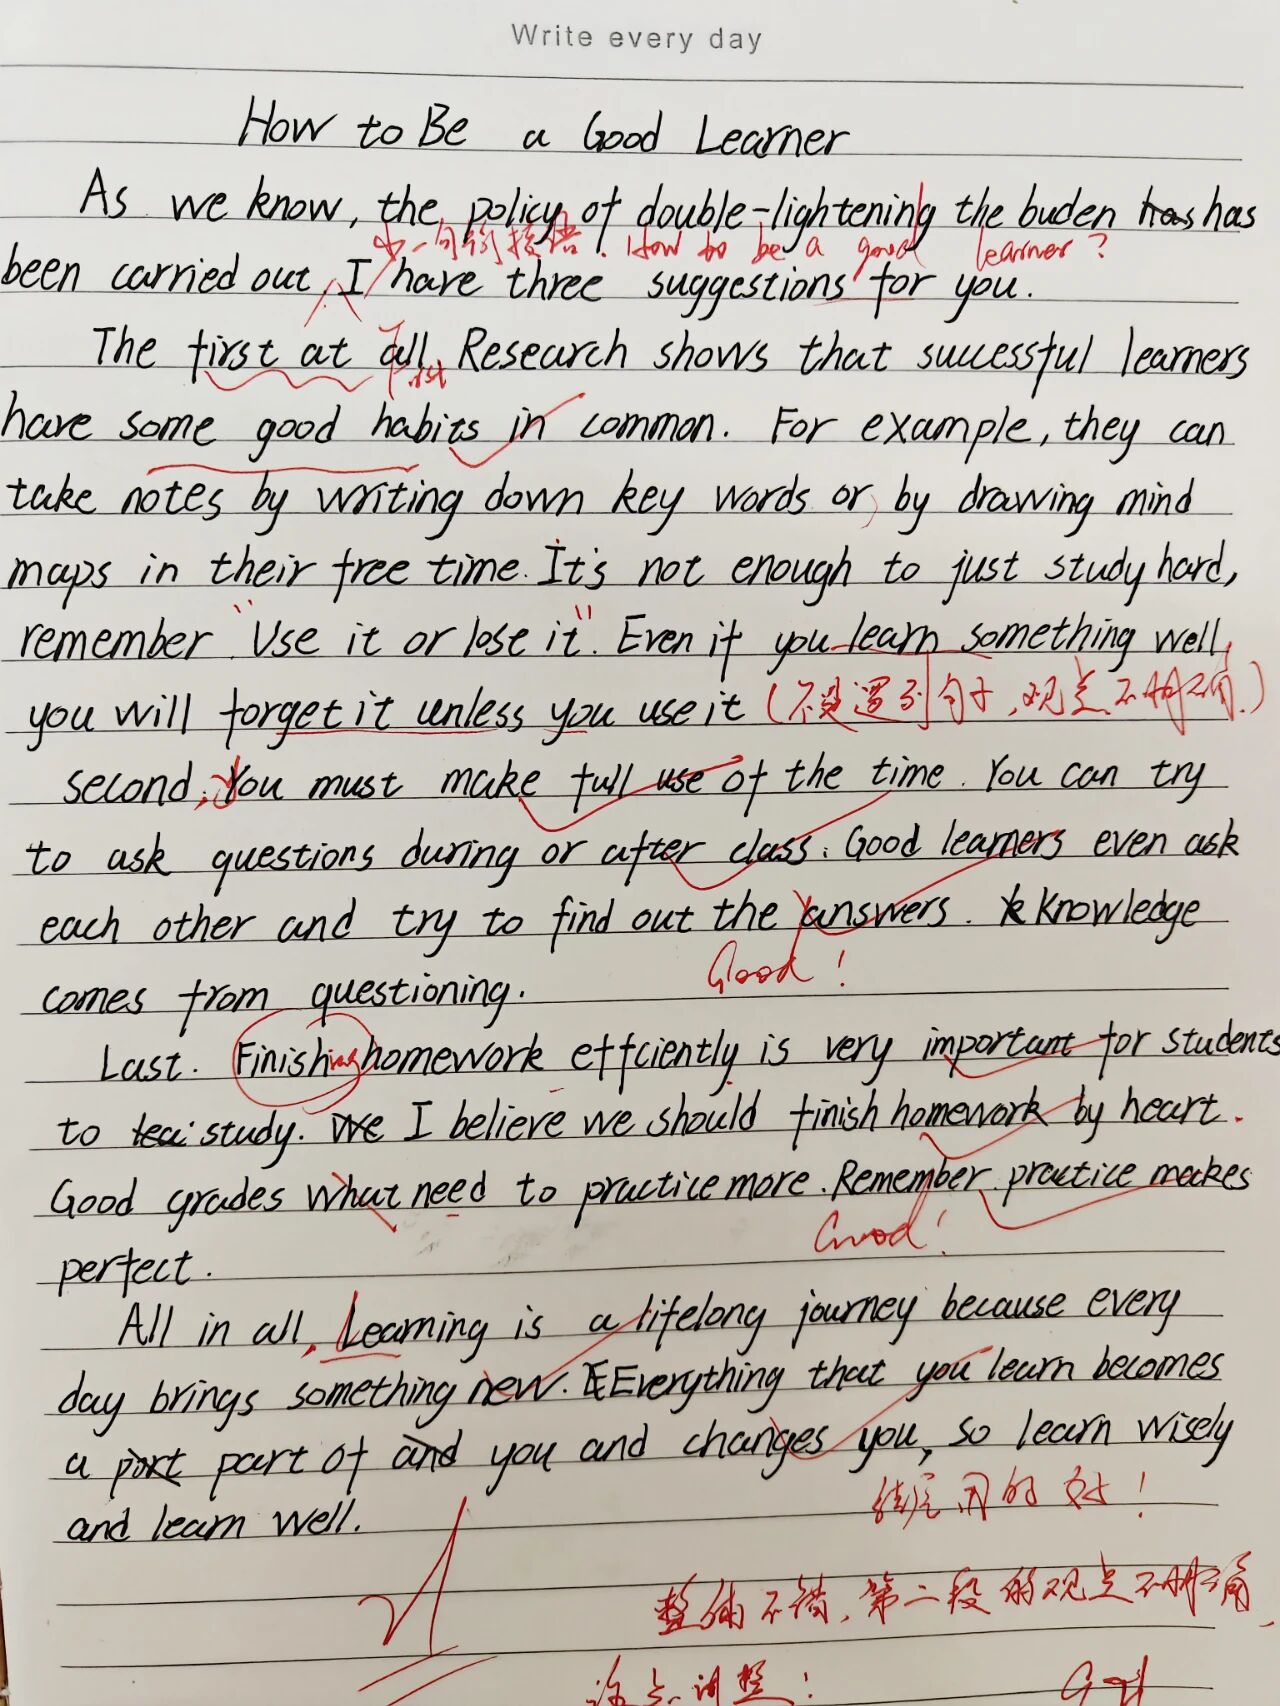 Write every day
How to Be a Good Learner
As we know, the policy of double-lightening the buden has has
少一句衔接语. How to be a good learner?
been carried out, I have three suggestions for you.
The first at all, Research shows that successful learners
first
have some good habits in common. For example, they can
take notes by writing down key words or, by drawing mind
maps in their free time. It's not enough to just study hard,
remember "Use it or lose it". Even if you learn something well,
you will forget it unless you use it (不是遇到句子,观点不明确.)
second, You must make full use of the time. You can try
to ask questions during or after class. Good learners even ask
each other and try to find out the answers. k Knowledge
Good!
comes from questioning.
Last. Finishing homework effciently is very important for students
to teai study. We I believe we should finish homework by heart.
Good grades what need to practice more. Remember practice makes
Good!
perfect.
All in all, Learning is a lifelong journey because every
day brings something new. E Everything that you learn becomes
a port part of and you and changes you, so learn wisely
结尾用的好!
and learn well.
整体不错,第二段的观点不明确,
注意调整!